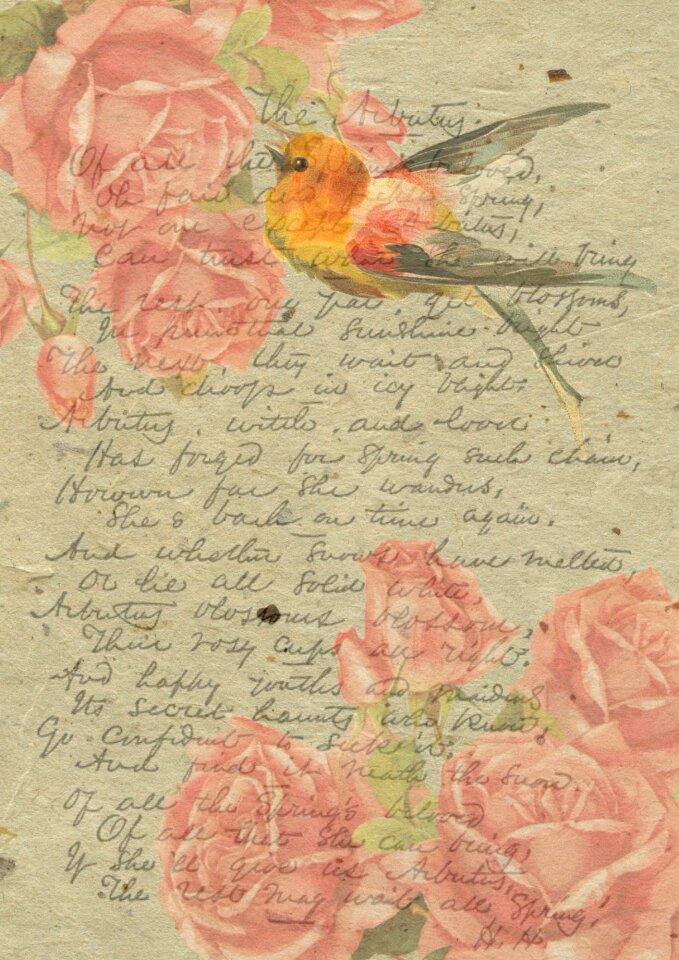 The Arbutus.
Of all the Spring's beloved,
Oh fair are Spring,
Not one except Arbutus,
Can trust what she will bring
The rest, one year, get blossoms,
In punctual sunshine bright
The next, they wait and shiver
And droop in icy blight.
Arbutus, and lover
Has forged for Spring such chain,
However far she wanders,
She's back on time again.
And whether snows have melted,
Or lie all solid white
Arbutus blossoms blossom,
Their rosy cups all right.
And happy youths and maidens
Its secret haunts who know,
Go confident to seek it,
And find it neath the snow.
Of all the Spring's beloved
Of all that she can bring,
If she'll give us Arbutus,
The rest may wait all Spring!
H. H.